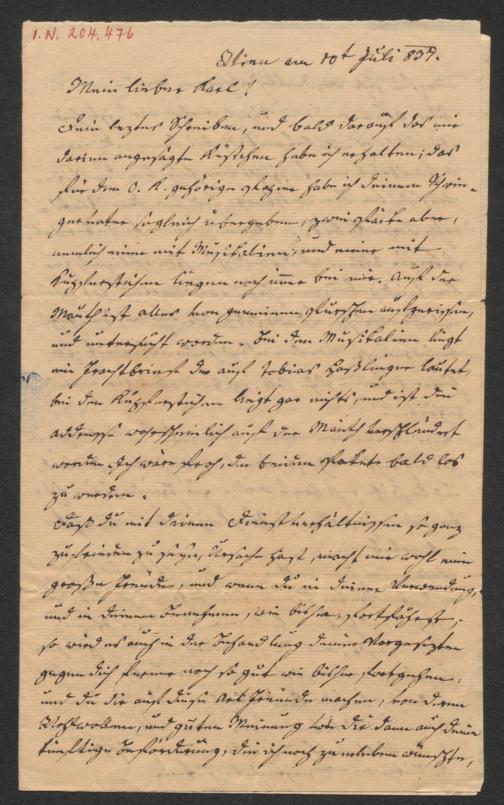 I.N. 204.476
Wien am 10t Juli 837.
Mein lieber Karl!
Dein leztes Schreiben, und bald darauf das mir
darinn angesagte Kistchen habe ich erhalten; das
für den O. K. gehörige habe ich deinem Schwie-
gervater sogleich übergeben, zwei Pakete aber,
nemlich eines mit Musikalien, und eines mit
Kupferstichen liegen noch imer bei mir. Auf der
Mauth ist alles von gemeinen Purschen aufgerissen,
und untersucht worden. Bei den Musikalien liegt
ein Frachtbrief der auf Tobias Haslinger lautet,
bei den Kupferstichen liegt gar nichts, und ist die
Addresse wahrscheinlich auf der Mauth verschleudert
worden. Ich wäre froh, die beiden Pakete bald los
zu werden.
Daß du mit deinen Dienstverhältnissen so ganz
zufrieden zu seyn, Ursache hast, macht mir wohl eine
große Freude, und wenn du in deiner Verwendung,
und in deinem Benehmen, wie bisher, fortfährst,
so wird es auch in der Behandlung deiner Vorgesezten
gegen dich ferner noch so gut wie bisher fortgehen,
und du dir auf diese Art Freunde machen, von deren
Wohlwollen, und guten Meinung von dir dann auch deine
künftige Beförderung, die ich noch zu erleben wünschte,